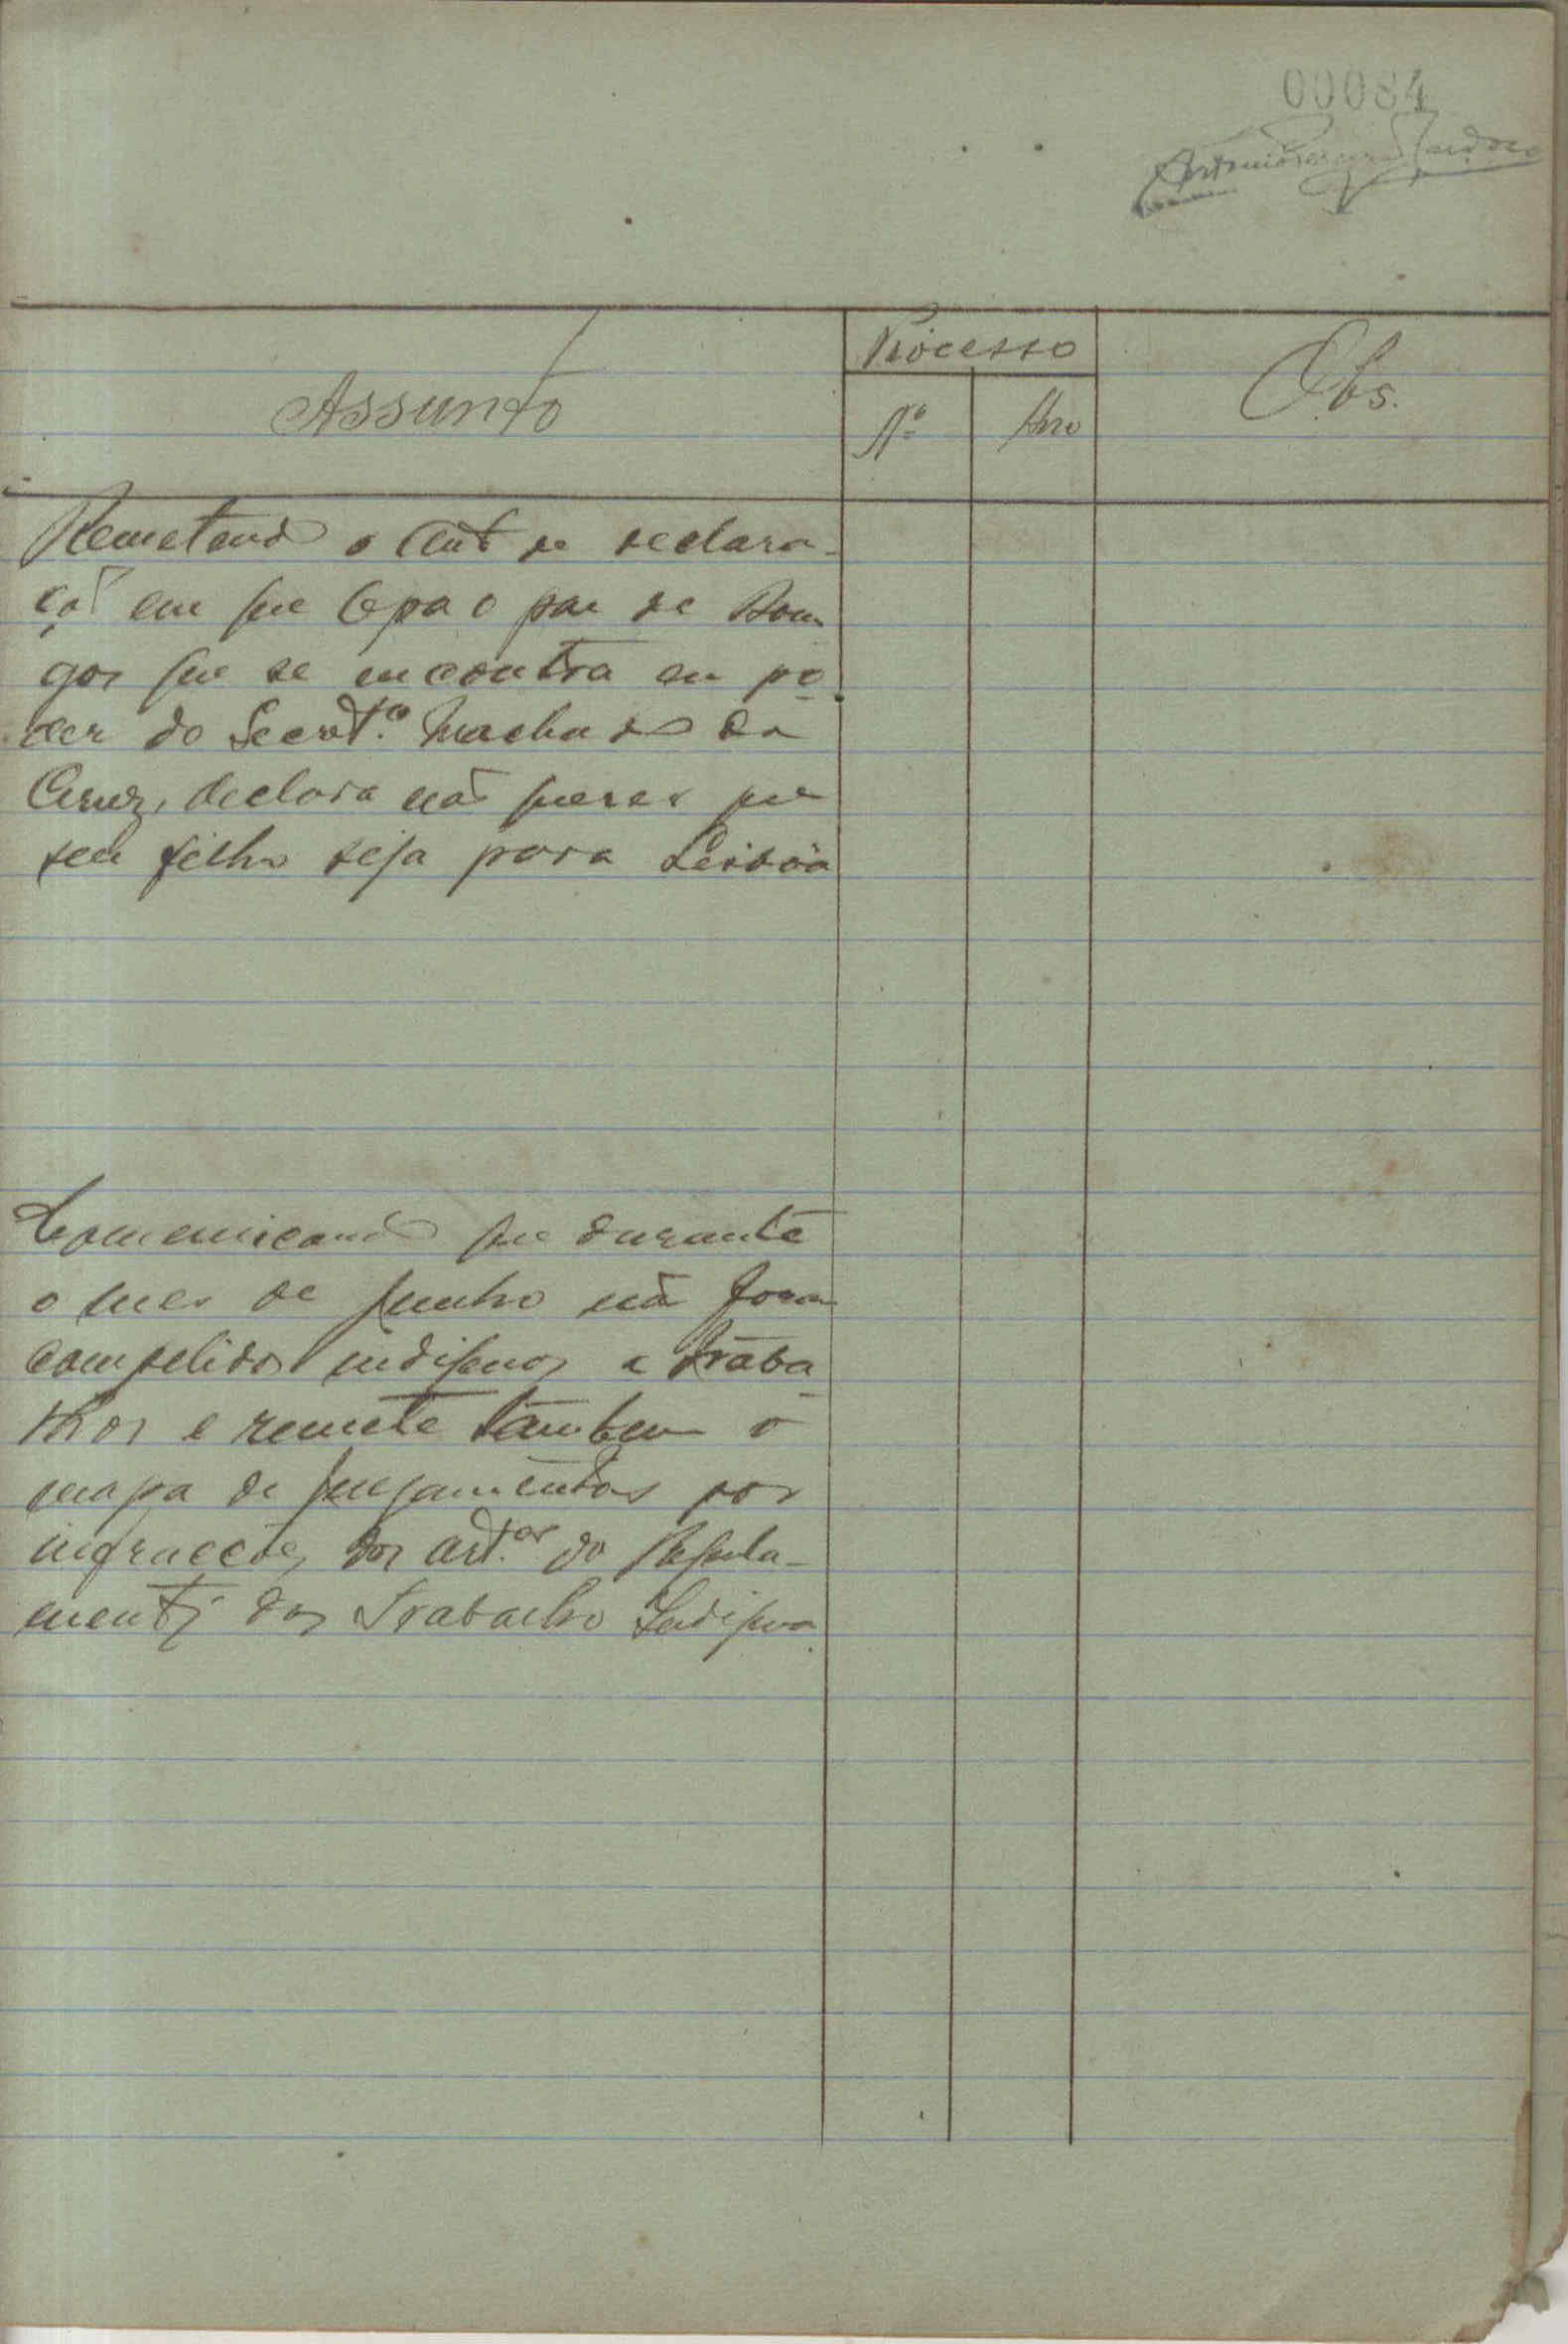 00084
Antonio Pereira Cardoso
Assunto
Processo
Nº
Ano
Obs.
Remetend o aut de declara-
çã em que Cepa o pai de Dom
gos que se encontra em po
der do Secretº Machado da
Cruz, declara não querer que
seu filho seja para Lisbôa
Comunicand que durante
o mes de Junho não foram
compelidos indigenos a traba
lhos e remete tambem o
mapa de julgamentos por
infracções dos artºs do Regula-
mento dos Trabalho Indigena